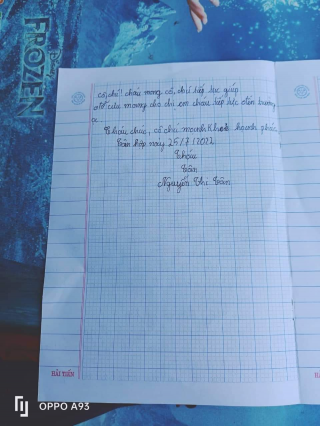 FROZEN
cô, chú!! cháu mong cô, chú tiếp tục giúp
đỡ cưu mang cho chị em cháu tiếp tục đến trường
ạ.
Cháu chúc, cô chú mạnh khoẻ hạnh phúc
Tân hợp ngày 25/7/2022
Cháu
Trân
Nguyễn Thị Trân
HẢI TIẾN
HẢI
OPPO A93